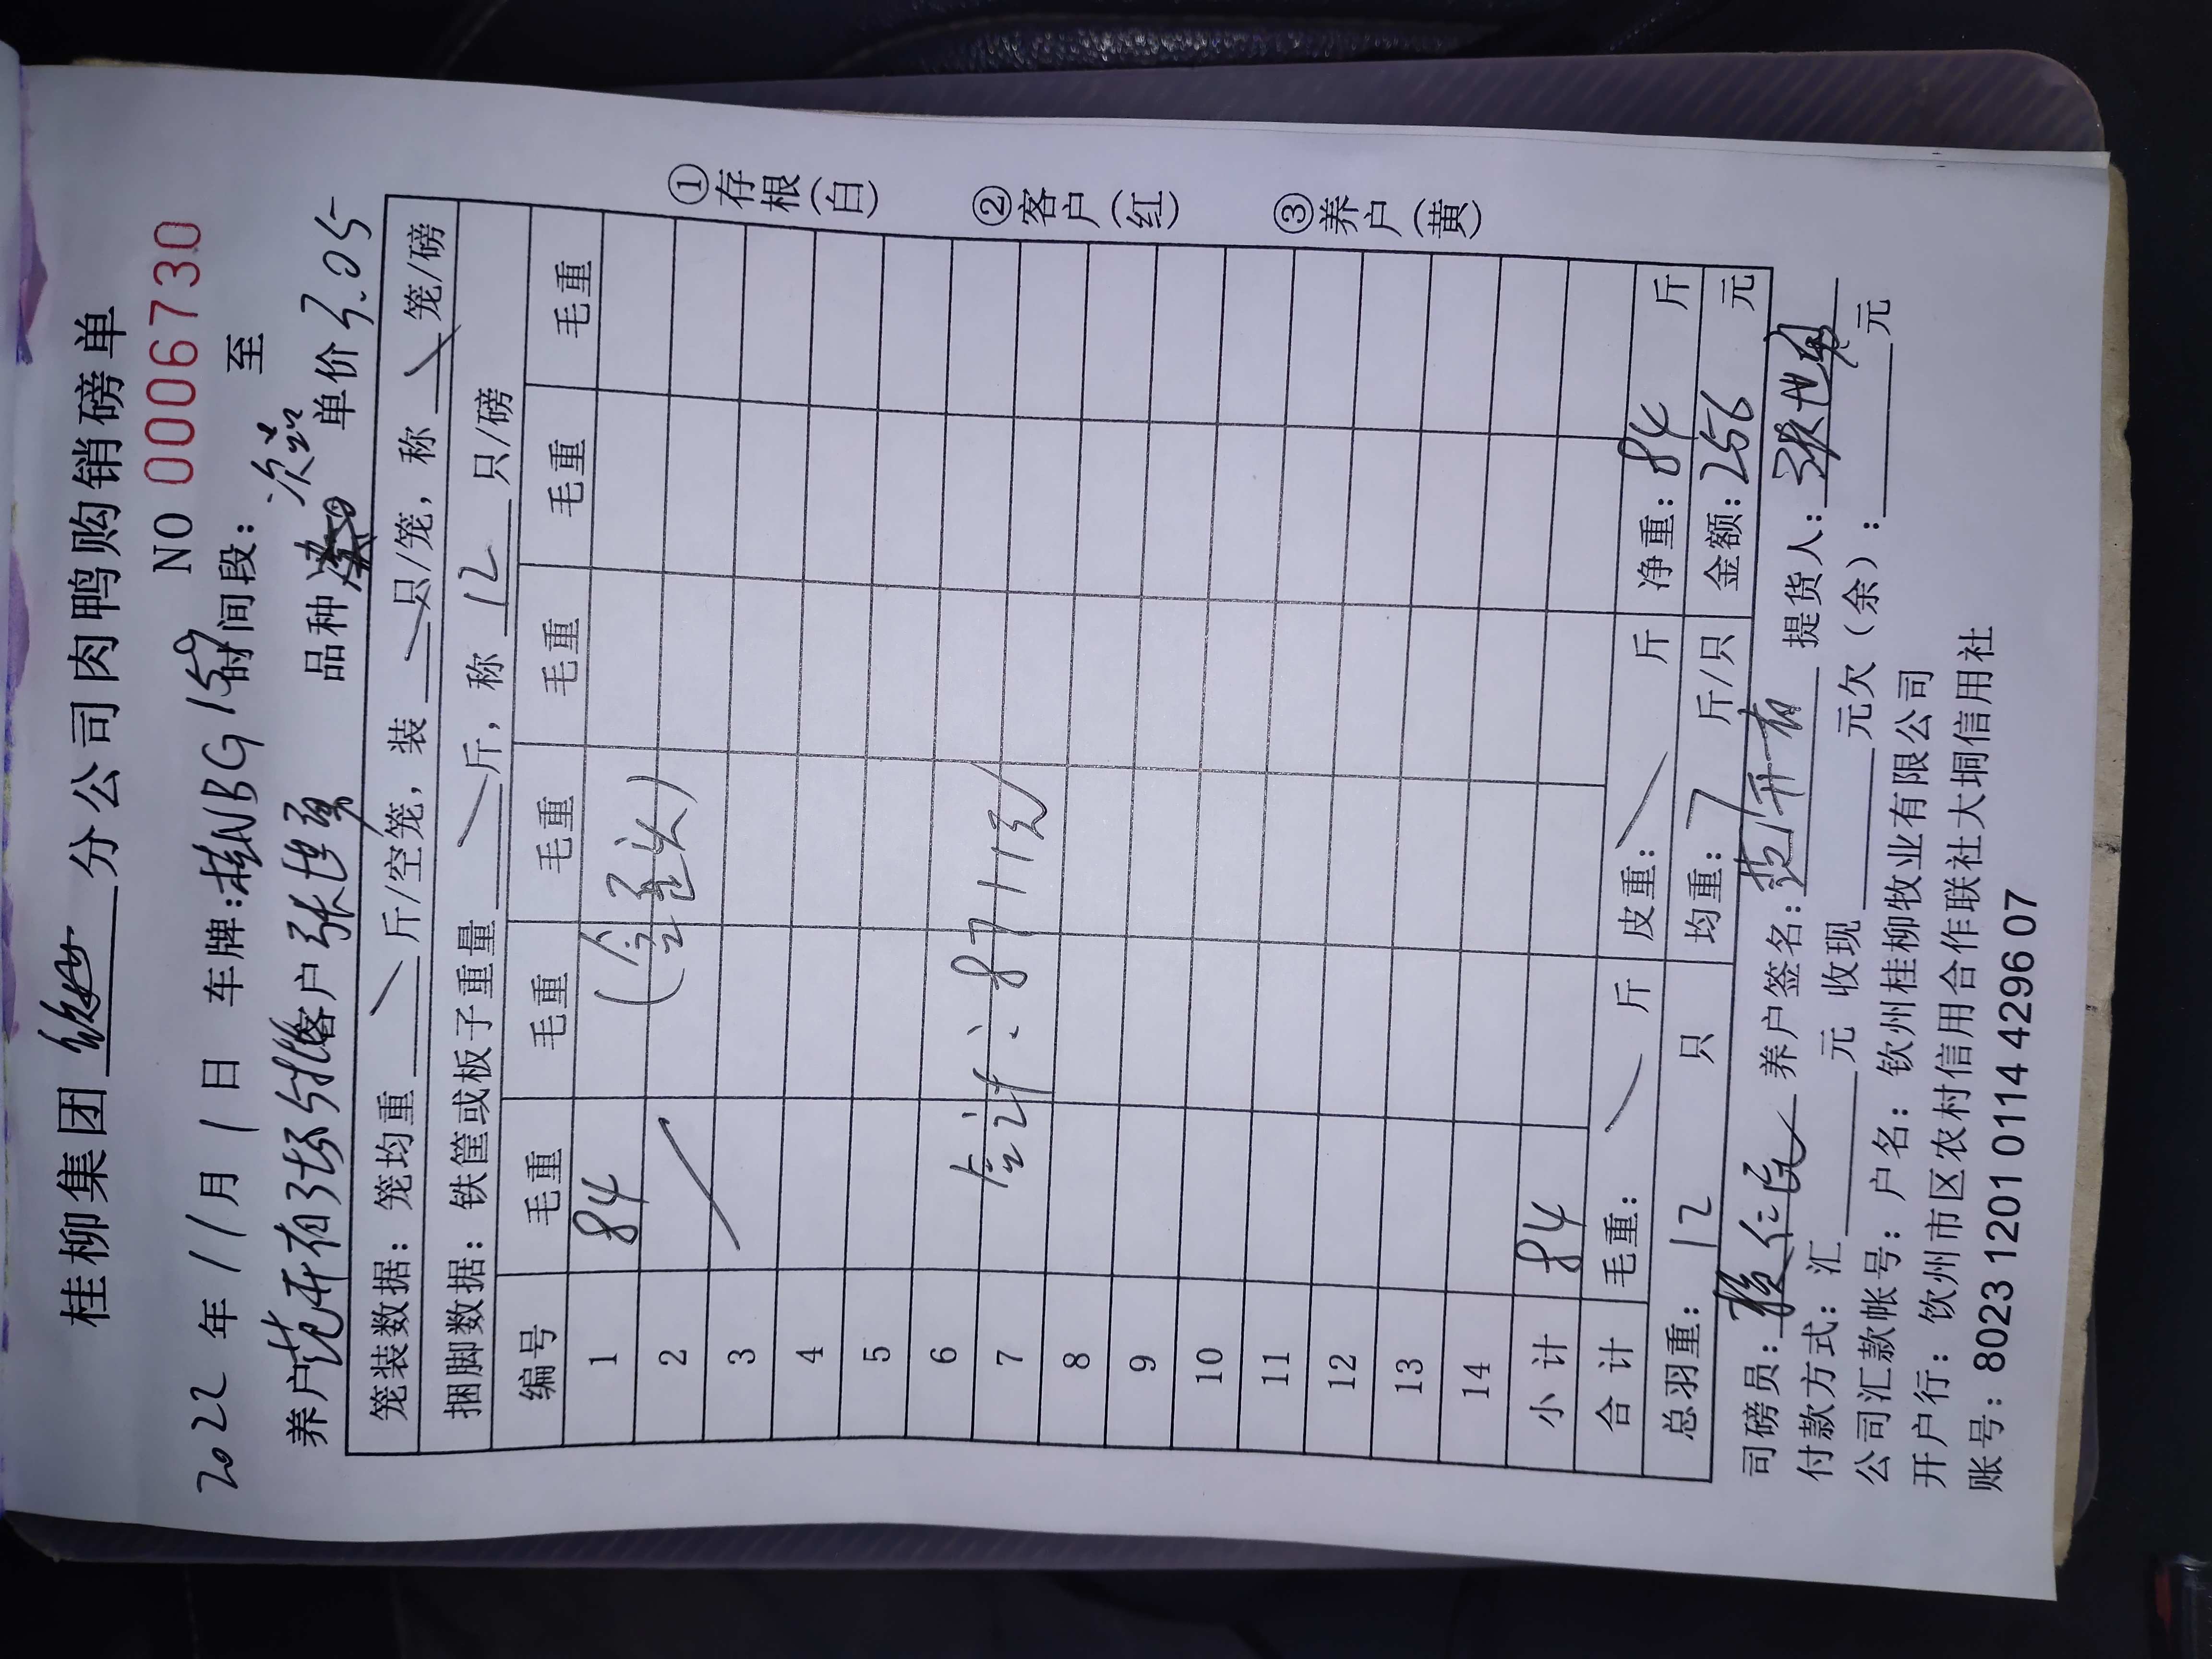 桂柳集团 分公司肉鸭购销磅单
NO 0006730
2022 年 11 月 1 日 车牌:桂NBG159 时间段: 至
养户 范开有 客户 张世勇 品种 次品 单价 3.05
笼装数据: 笼均重 斤/空笼, 装 只/笼, 称 笼/磅
捆脚数据: 铁筐或板子重量 斤, 称 12 只/磅
编号 毛重 毛重 毛重 毛重 毛重 毛重
1 84
2
3
4
5
6
7 合计: 8711元
8
9
10
11
12
13
14
小计 84
合计 毛重: 斤 皮重: 斤 净重: 84 斤
总羽重: 12 只 均重: 7 斤/只 金额: 256 元
①存根(白)
②客户(红)
③养户(黄)
司磅员: 养户签名: 范开有 提货人: 张世勇
付款方式: 汇 元 收现 元欠(余): 元
公司汇款帐号: 户名: 钦州桂柳牧业有限公司
开户行: 钦州市区农村信用合作联社大垌信用社
账号: 8023 1201 0114 4296 07